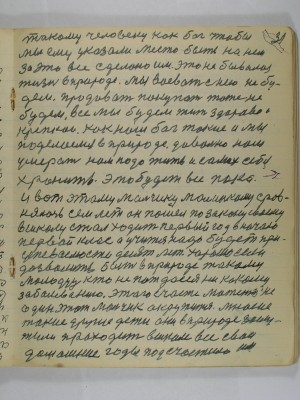 такому человеку как бог чтобы
мы ему указали место быть на нем
За это все сделано им. Это не бывалая
жизнь в природе. мы воевать с нею не бу-
дем. продавать покупать тоже не
будем, все мы будем жить здорово и
крепко. как наш бог такие и мы
поделаемся в природе довольно нам
умерать нам надо жить и самих себя
хранить. Это будет все наше.
и вот этому мальчику маленькому
семь лет он пошел по закону своему
в школу стал ходить первый год в начало
первый клас а учится надо будет при-
десять лет хорошо если
дозволить быть в природе такому
молодцу кто не поддался ни какому
заболеванию. Этого счастя не
один этот мальчик окружится. многие
такие другие дети они в природе
жили проходят в школе все свои
домашние годы по счастливому